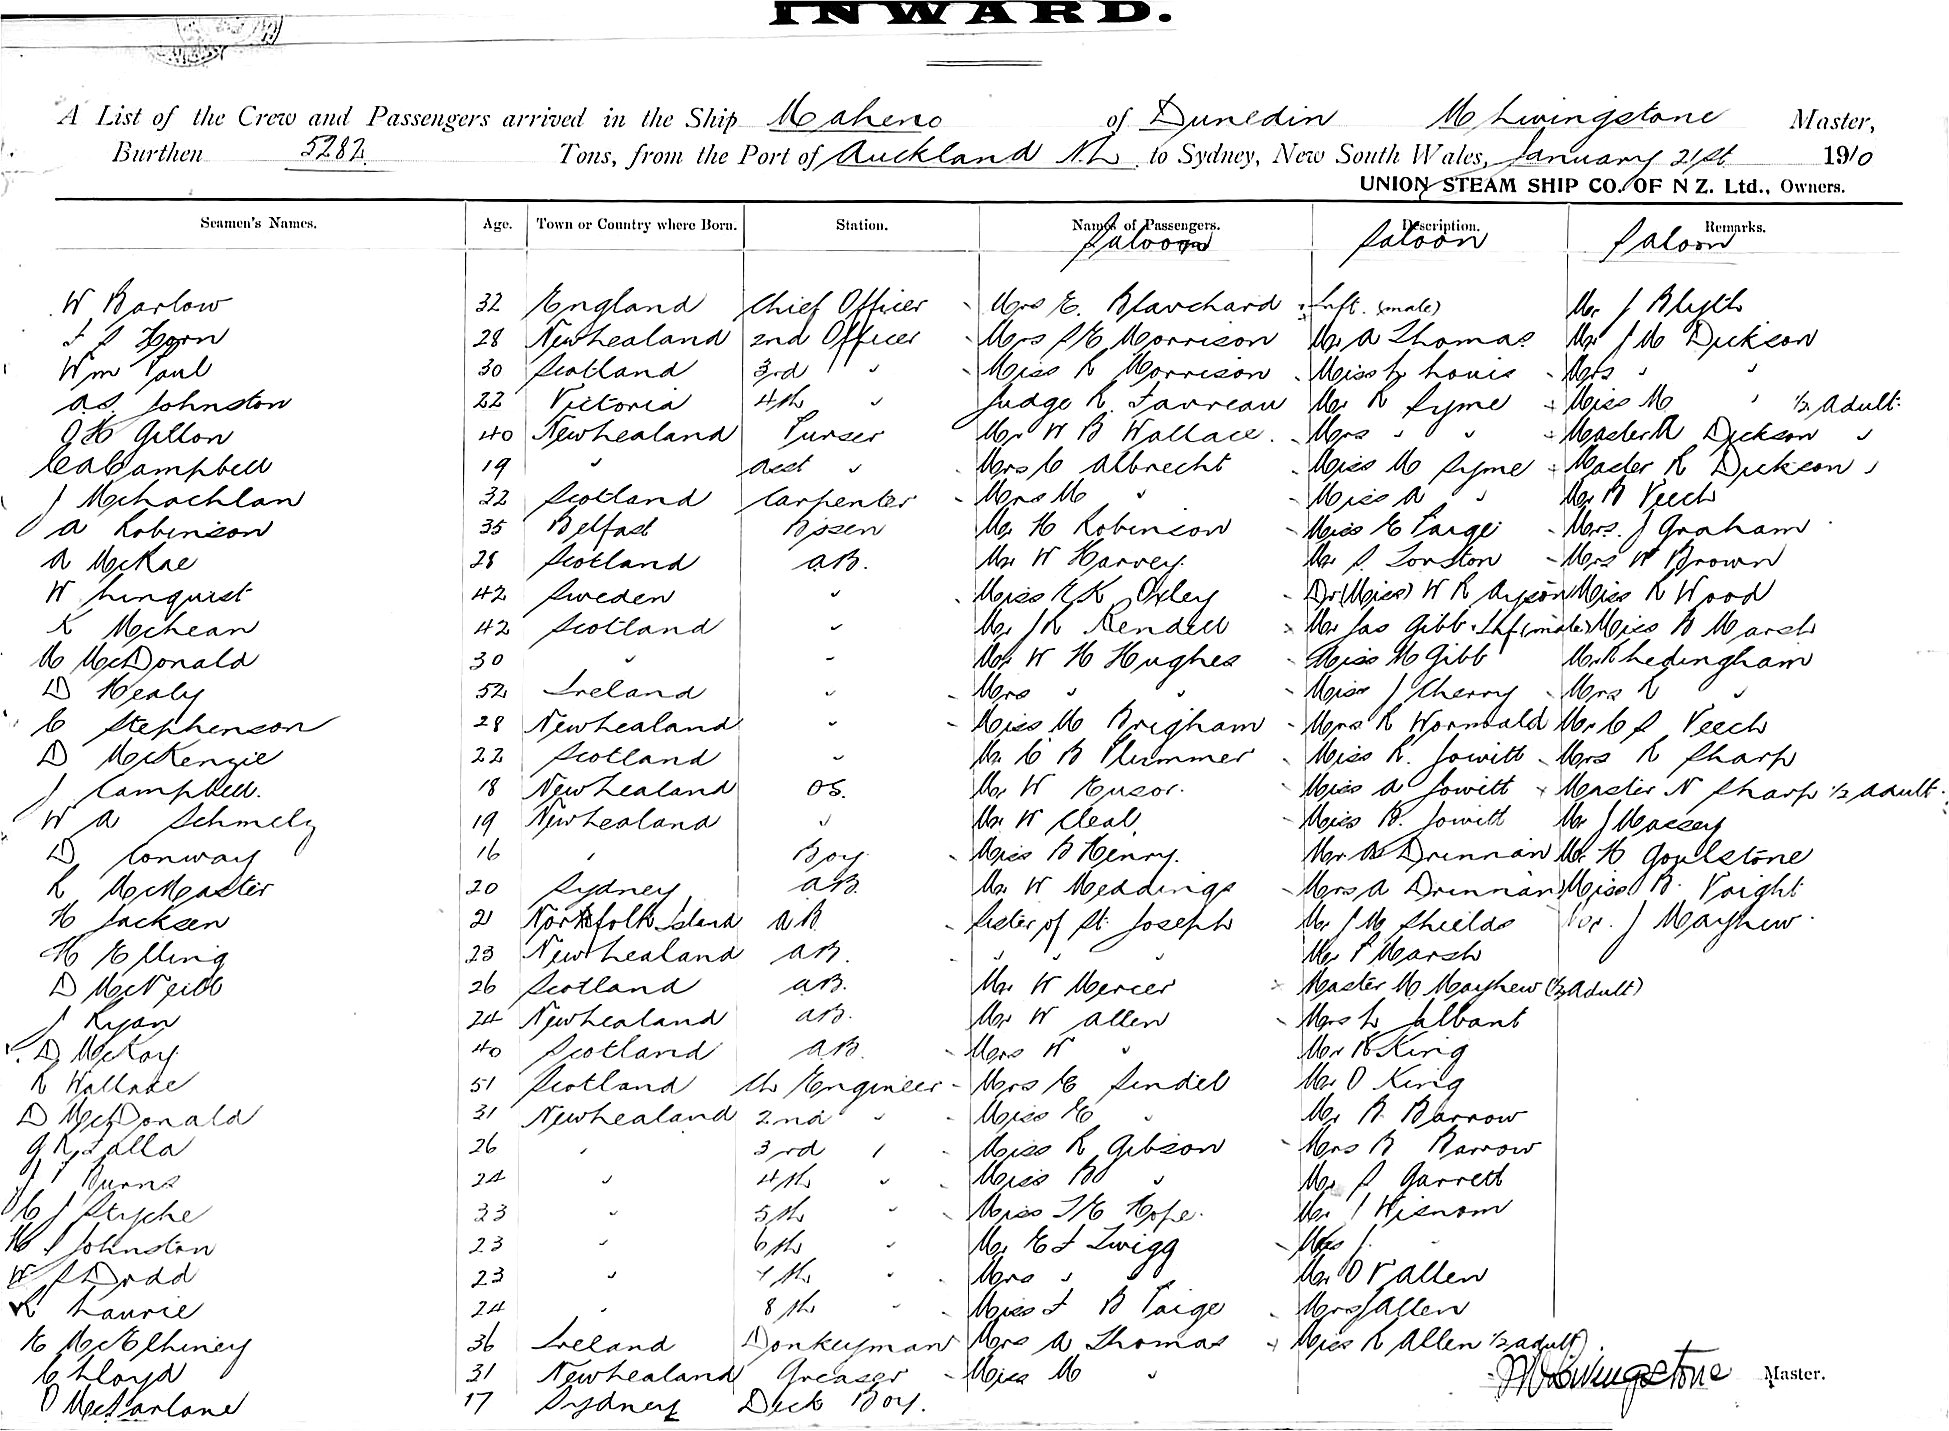 INWARD.
A List of the Crew and Passengers arrived in the Ship Maheno of Dunedin M Livingstone Master,
Burthen 5282 Tons, from the Port of Auckland N.Z. to Sydney, New South Wales, January 21st 1910
UNION STEAM SHIP CO. OF N Z. Ltd., Owners.
Seamen's Names. Age. Town or Country where Born. Station. Names of Passengers. Description. Remarks.
Saloon Saloon Saloon
W Barlow 32 England Chief Officer Mrs E. Blanchard Inft. (male) Mr J Blyth
Horn 28 New Zealand 2nd Officer Mrs S E Morrison Mr A Thomas Mr J M Dickson
Wm Paul 30 Scotland 3rd " Miss R Morrison Miss L Louis Mrs " "
A S Johnston 22 Victoria 4th " Judge R. Farreau Mr R Syme Miss M " ½ Adult
O H Gillon 40 New Zealand Purser Mr W B Wallace Mrs " " Master A Dickson "
C A Campbell 19 " Asst " Mrs C Albrecht Miss M Syme Master R Dickson "
J McLachlan 32 Scotland Carpenter Mrs M " Miss A " Mr B Veech
A Robinson 35 Belfast Bosen Mr H Robinson Miss E Paige Mrs. J Graham
A McRae 28 Scotland AB. Mr W Harvey. Mr S. Mrs W Brown
W Linquist 42 Sweden " Miss E K Oxley Dr (Miss) W R Aryson Miss R Wood
K McLean 42 Scotland " Mr J R Rendell Mr Jas Gibb Inf (male) Miss B Marsh
M McDonald 30 " " Mr W H Hughes Miss M Gibb Mr R Ledingham
D Healy 52 Ireland " Mrs " " Miss J Cherry Mrs R "
C Stephenson 28 New Zealand " Miss M Brigham Mrs R Wormald Mr C S Veech
D McKenzie 22 Scotland " Mr C B Plummer Miss R. Jowitt Mrs R Sharp
J Campbell. 18 New Zealand OS. Mr W Ensor. Miss A Jowitt Master N Sharp ½ Adult
W A Schmely 19 New Zealand " Mr W Cleal Miss B. Jowitt Mr J Massey
D Conway 16 " Boy Miss B Henry. Mr A Drennan Mr H Goulstone
R McMaster 20 Sydney AB. Mr W Meddings Mrs A Drennan Miss B. Voight
H Jacksen 21 Norfolk Island AB Sister of St. Joseph Mr J M Shields J Mayhew
H Elling 23 New Zealand AB. " " " Mr P Marsh
D McNeill 26 Scotland AB. Mr W Mercer Master M Mayhew (½ Adult)
J Ryan 24 New Zealand AB. Mr W Allen Mrs L Jalbant
D McKay 40 Scotland AB. Mrs W " Mr R King
R Wallace 51 Scotland Ch Engineer Mrs E Sindel Mr O King
D McDonald 31 New Zealand 2nd " Miss E " Mr B. Barrow
G R Falla 26 " 3rd " Miss R Gibson Mrs B Barrow
Burns 24 " 4th " Miss B " Mr S Garrett
C J Styche 33 " 5th " Miss T E Hope. Mr J Wisnom
Johnston 23 " 6th " Mr E F Twigg Mrs J. "
W S Dodd 23 " 7th " Mrs " " Mr O V Allen
R Laurie 24 " 8th " Miss F B Paige Mrs J Allen
E McElhiney 36 Ireland Donkeyman Mrs A Thomas Miss R Allen ½ Adult)
C Lloyd 31 New Zealand Greaser Miss M " M Livingstone Master.
O McFarlane 17 Sydney Deck Boy.